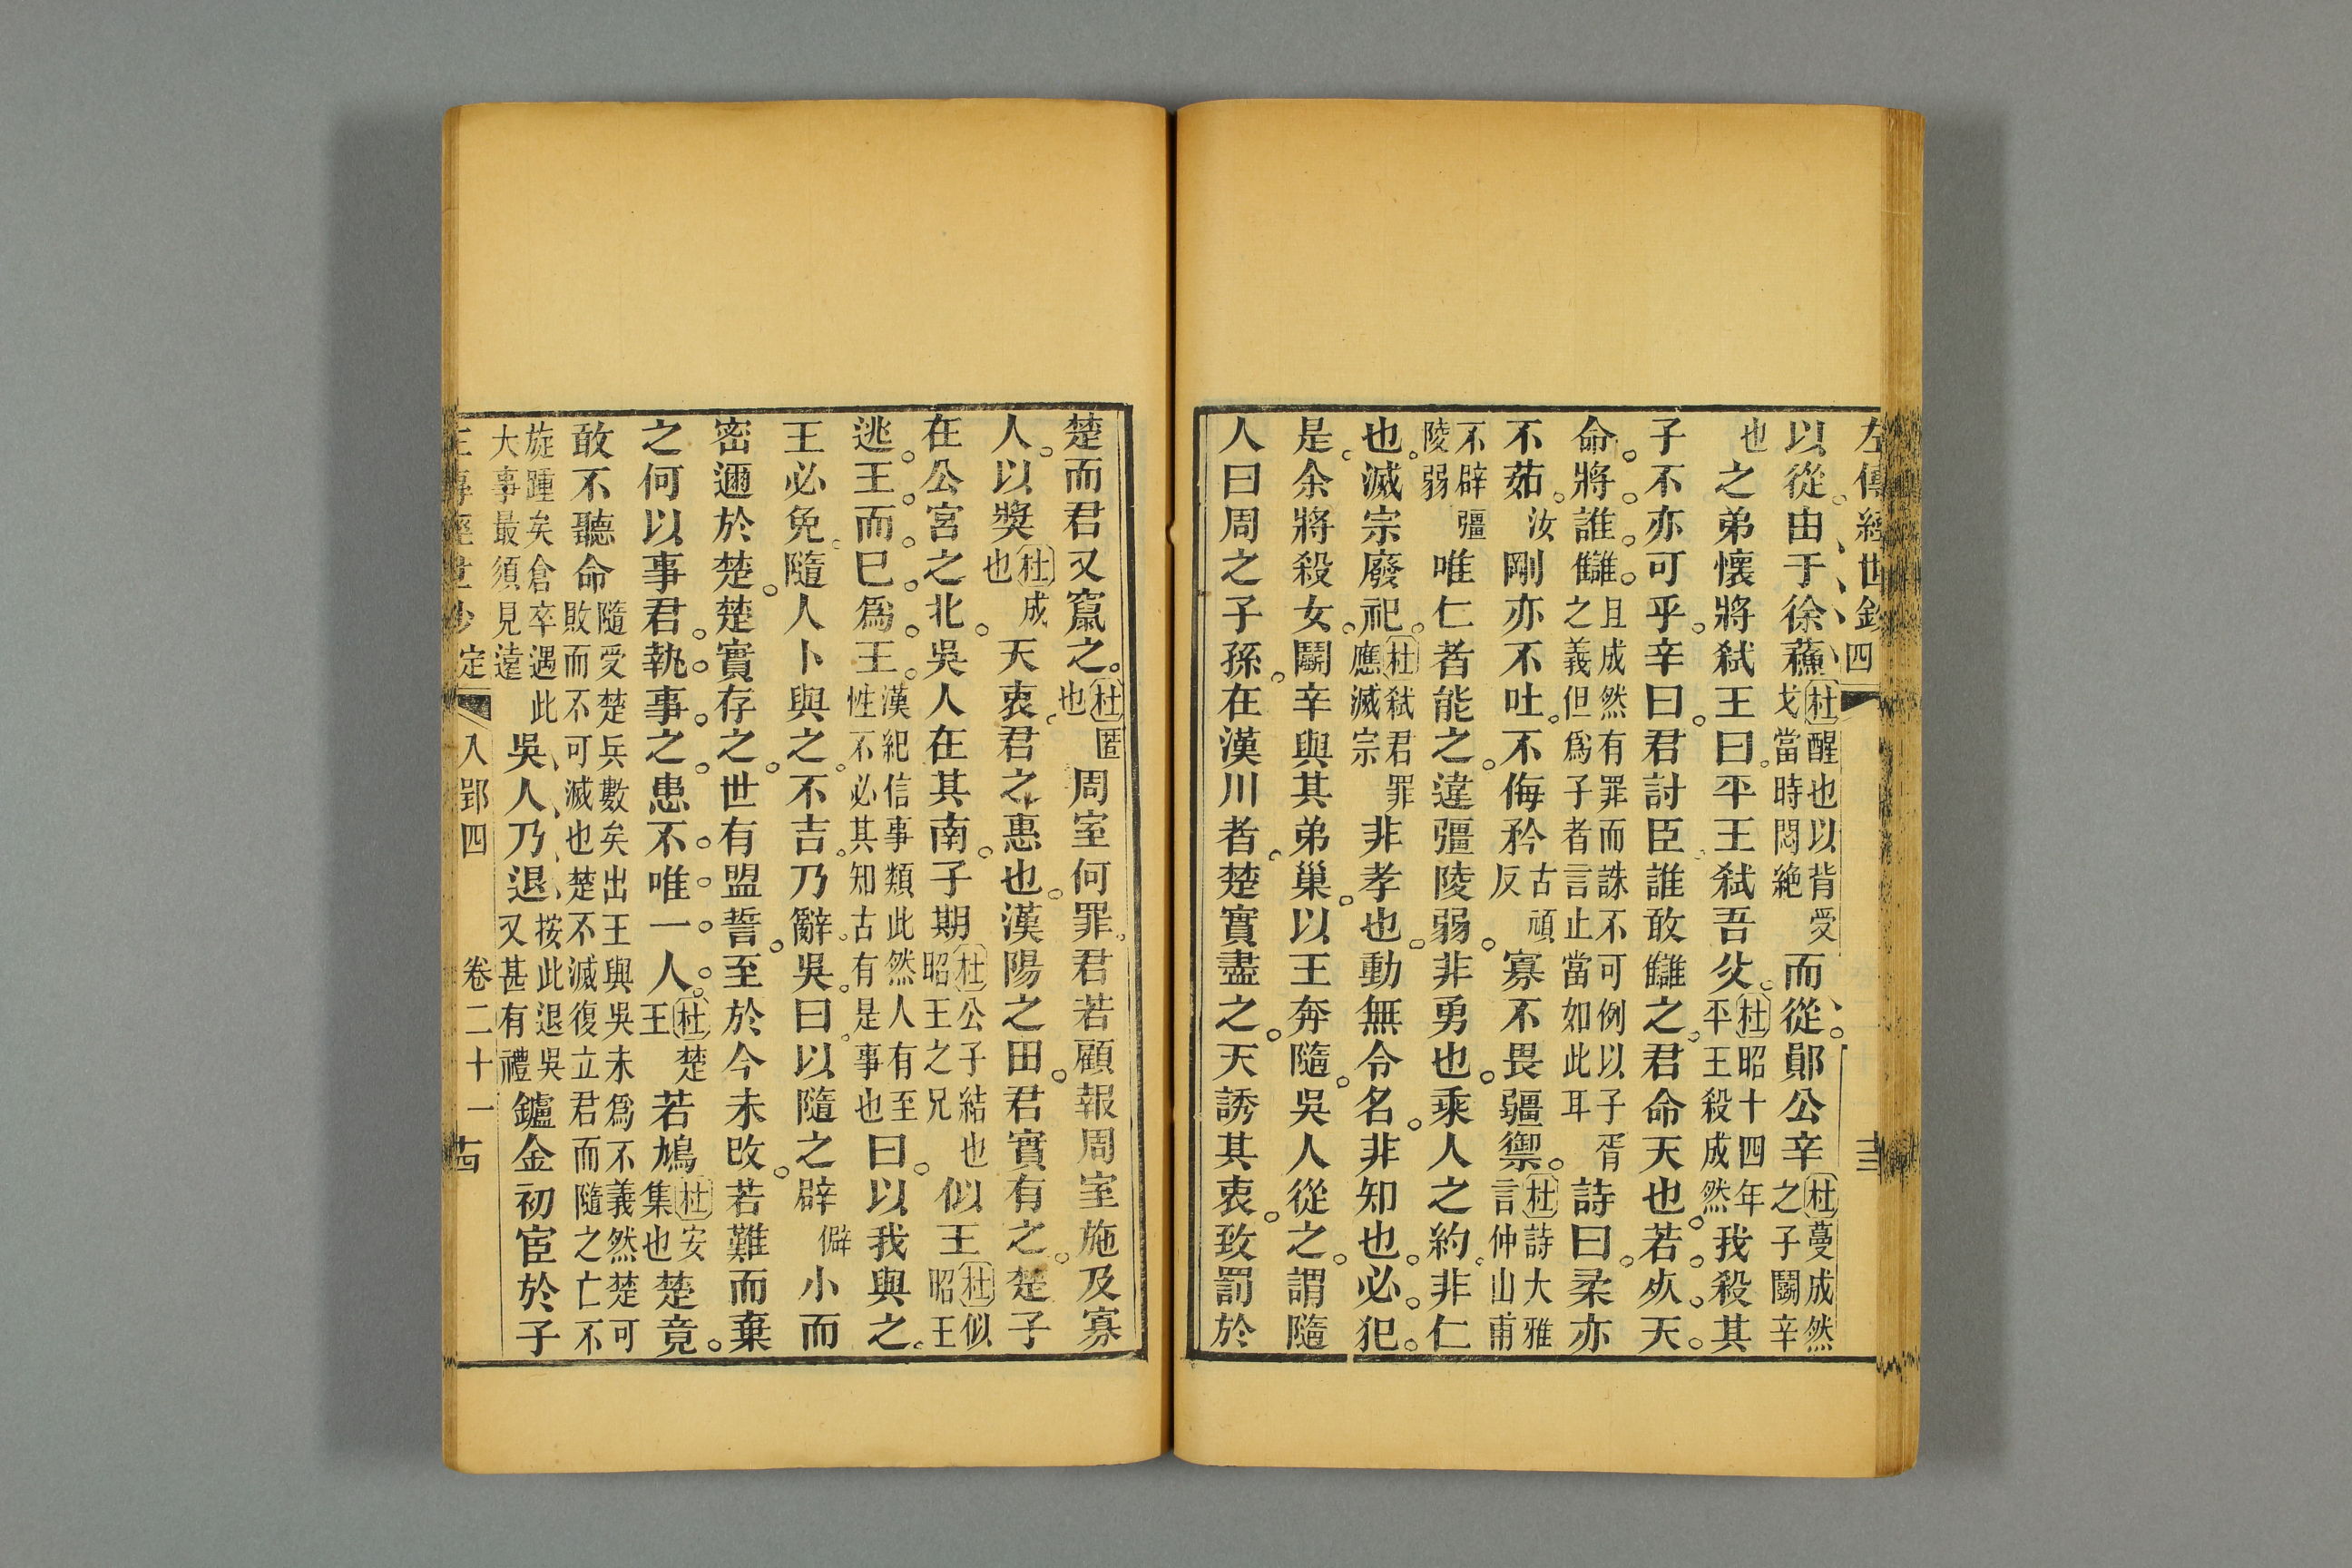 左傳經世鈔 四 十三
以從。由于徐蘇杜醒也以背受戈當時悶絶而從。鄖公辛杜蔓成然之子鬬辛
也之弟懷將弑王曰。平王弑吾父。杜昭十四年平王殺成然我殺其
子不亦可乎。辛曰。君討臣。誰敢讎之。君命天也。若死天。
命。將。誰。讎。且成然有罪而誅不可例以子胥之義但爲子者言止當如此耳詩曰。柔亦
不茹。汝剛亦不吐。不侮矜古頑反寡不畏彊禦。杜詩大雅言仲山甫
不辟彊陵弱唯仁者能之。違彊陵弱。非勇也。乘人之約。非仁
也。滅宗廢祀。杜弑君罪應滅宗非孝也。動無令名。非知也。必。犯。
是。余將殺女。鬬辛與其弟巢。以王奔隨。吳人從之。謂隨
人曰周之子孫。在漢川者。楚實盡之。天誘其衷。致罰於
楚而君又竄之。杜匿也周室何罪。君若顧報周室施及寡
人。以奬杜成也天衷。君之惠也。漢陽之田。君實有之。楚子
在公宮之北。吳人在其南。子期杜公子結也昭王之兄似王杜似昭王
逃。王。而。已。爲。王。漢紀信事類此然人有至性不必其知古有是事也曰。以我與之。
王必免。隨人卜與之。不吉。乃辭。吳。曰。以隨之辟僻小而
密邇於楚。楚實存之。世有盟誓。至於今未改。若難而棄
之何以事君。執。事。之。患。不。唯。一。人。杜楚王若鳩杜安集也楚竟。
敢不聽命隨受楚兵數矣出王與吳未爲不義然楚可敗而不可滅也楚不滅復立君而隨之亡不
旋踵矣倉卒遇此大事最須見遠吳人乃退按此退吳又甚有禮鑪金初宦於子
定 入郢四 卷二十一 十四